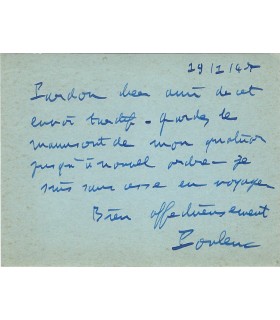 19/1/47
Pardon cher ami de cet
envoi tardif - gardez le
manuscrit de mon quatuor
jusqu'à nouvel ordre - je
suis sans cesse en voyage
Bien affectueusement
Poulenc